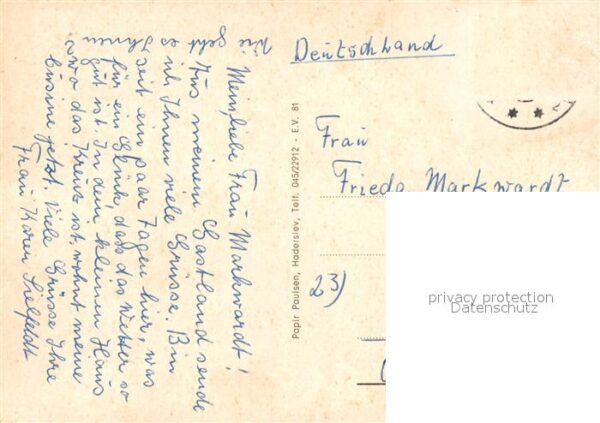 Meine liebe Frau Markwardt!
Aus meinem Gastland sende
ich Ihnen viele Grüsse. Bin
seit ein paar Tagen hier, was
für ein Glück, dass das Wetter so
gut ist. In dem kleinen Haus
wo das Kreuz ist, wohnt meine
Cusine jetzt. Viele Grüsse Ihre
Frau Karen
Wie geht es Ihnen
Papir Paulsen, Haderslev, Telf. 045/22912 - E.V. 81
Deutschland
Frau
Frieda Markwardt
23)
privacy protection
Datenschutz